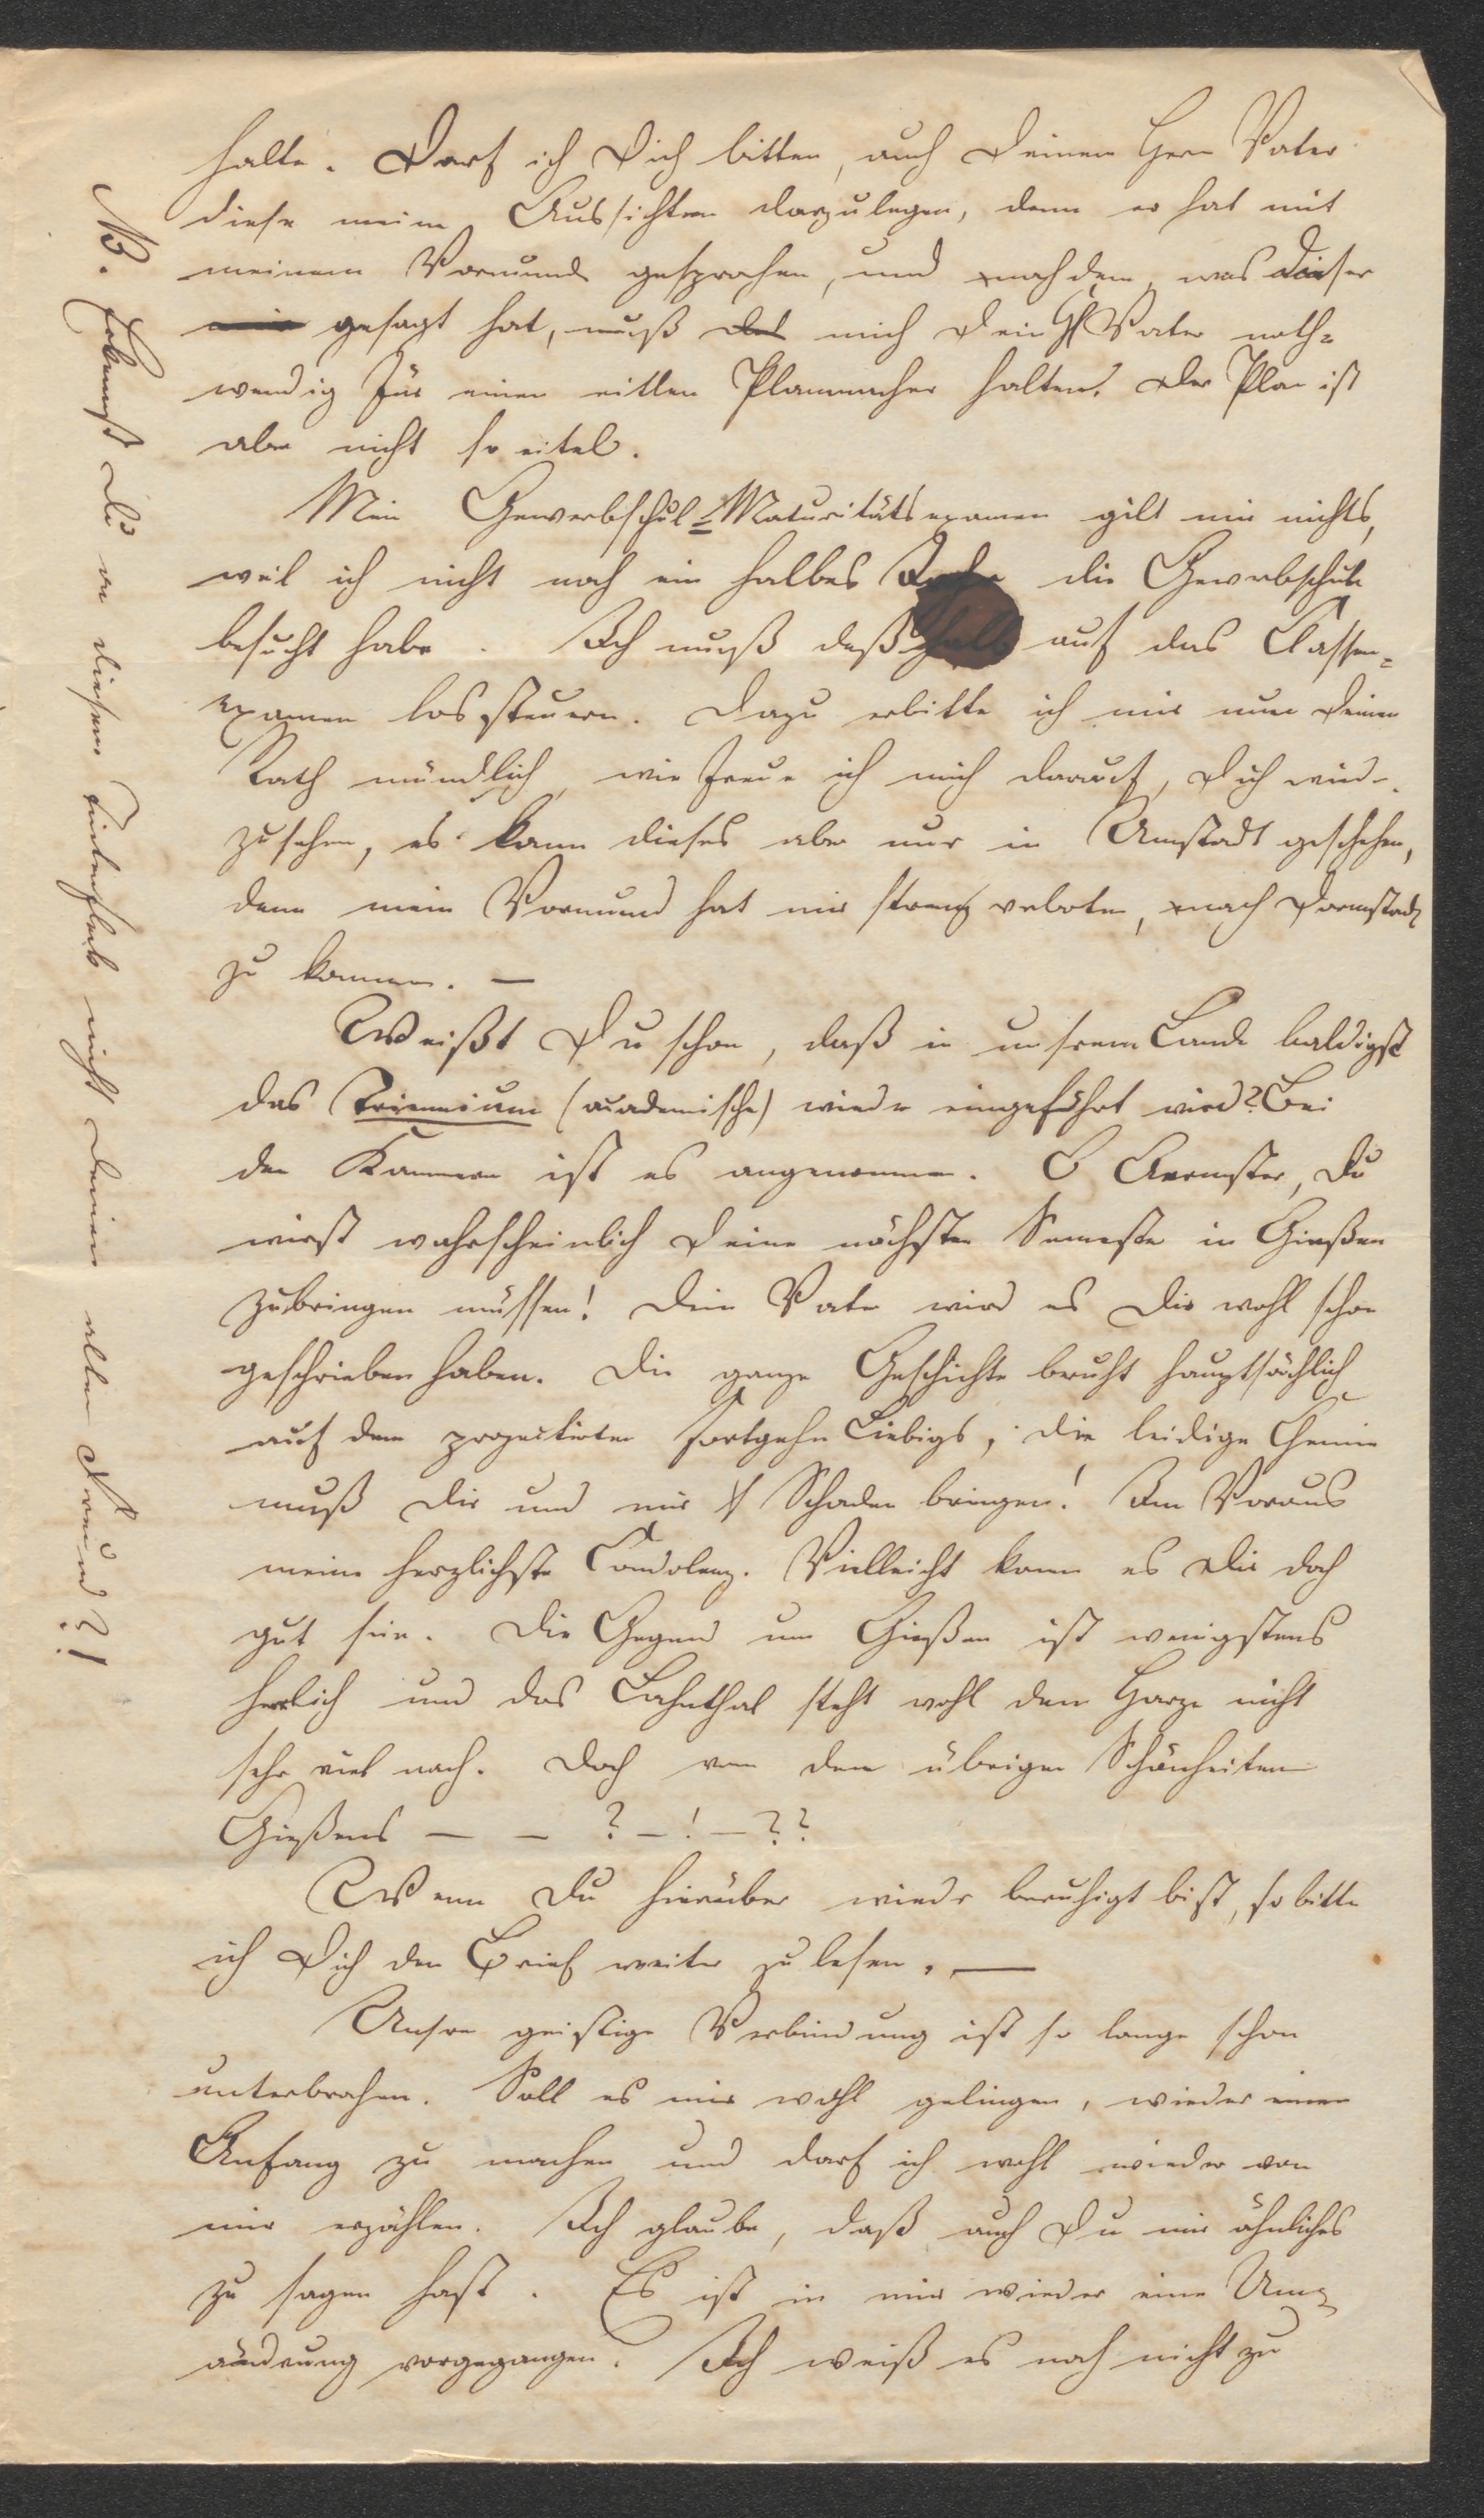 halte. Darf ich Dich bitten, auch Deinem Herrn Vater
diese meine Aussichten darzulegen, denn er hat mit
meinem Vormunde gesprochen, und nach dem, was dieser
gesagt hat, muß mich Dein H. Vater noth-
wendig für einen eitlen Planmacher halten. Der Plan ist
aber nicht so eitel.
Mein Gewerbschul-Maturitätsexamen gilt mir nichts,
weil ich nicht noch ein halbes Jahr die Gewerbschule
besucht habe. Ich muß deßhalb auf das Classen-
examen lossteuern. Dazu erbitte ich mir nun Deinen
Rath mündlich, wie freue ich mich darauf, Dich wieder-
zusehen, es kann dieses aber nur in Umstadt geschehen,
denn mein Vormund hat mir streng verboten, nach Darmstadt
zu kommen. —
Weißt Du schon, daß in unsrem Lande baldigst
das Triennium (academische) wieder eingeführt wird? Bei
den Kammern ist es angenommen. O Aermster, Du
wirst wahrscheinlich Deine nächsten Semester in Gießen
zubringen müssen! Dein Vater wird es Dir wohl schon
geschrieben haben. Die ganze Geschichte beruht hauptsächlich
auf dem projectirten Fortgehn Liebigs, die leidige Chemie
muß Dir und mir Schaden bringen! Im Voraus
meine herzlichste Condolenz. Vielleicht kann es Dir doch
gut sein. Die Gegend um Gießen ist wenigstens
herrlich und das Lahnthal steht wohl dem Harze nicht
sehr viel nach. Doch von den übrigen Schönheiten
Gießens — — ? — ! — ??
Wenn Du hierüber wieder beruhigt bist, so bitte
ich Dich den Brief weiter zu lesen. —
Unsre geistige Verbindung ist so lange schon
unterbrochen. Soll es mir wohl gelingen, wieder einen
Anfang zu machen und darf ich wohl wieder von
mir erzählen. Ich glaube, daß auch Du mir ähnliches
zu sagen hast. Es ist in mir wieder eine Um-
änderung vorgegangen. Ich weiß es noch nicht zu
NB. Erkennst Du an diesem Tintenfleck nicht Deinen alten Freund?!